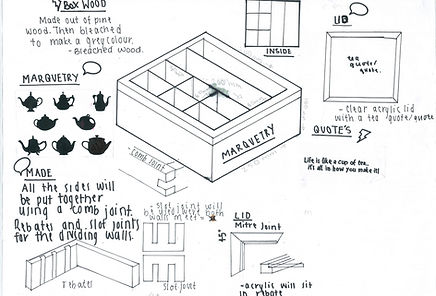 BOX WOOD
Made out of pine
wood. Then bleached
to make a grey colour.
- Bleached wood.
INSIDE
LID
tea
quote/
quote.
- clear acrylic lid
with a tea quote/quote
MARQUETRY
MARQUETRY
QUOTE'S
Life is like a cup of tea,
it's all in how you make it!
comb joint
MADE
All the sides will
be put together
using a comb joint.
Rebates and slot joints
for the dividing walls.
- slot joint will
be used were both
walls meet =
Rebates
slot joint
LID
Mitre Joint
45°
- acrylic will sit
in rebate